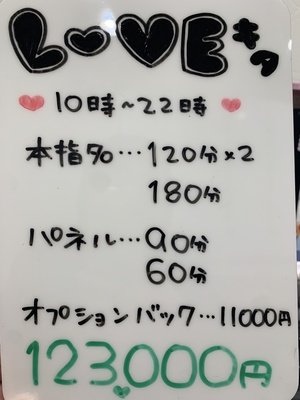 LOVEキタ
10時~22時
本指名…120分×2
180分
パネル…90分
60分
オプションバック…11000円
123,000円